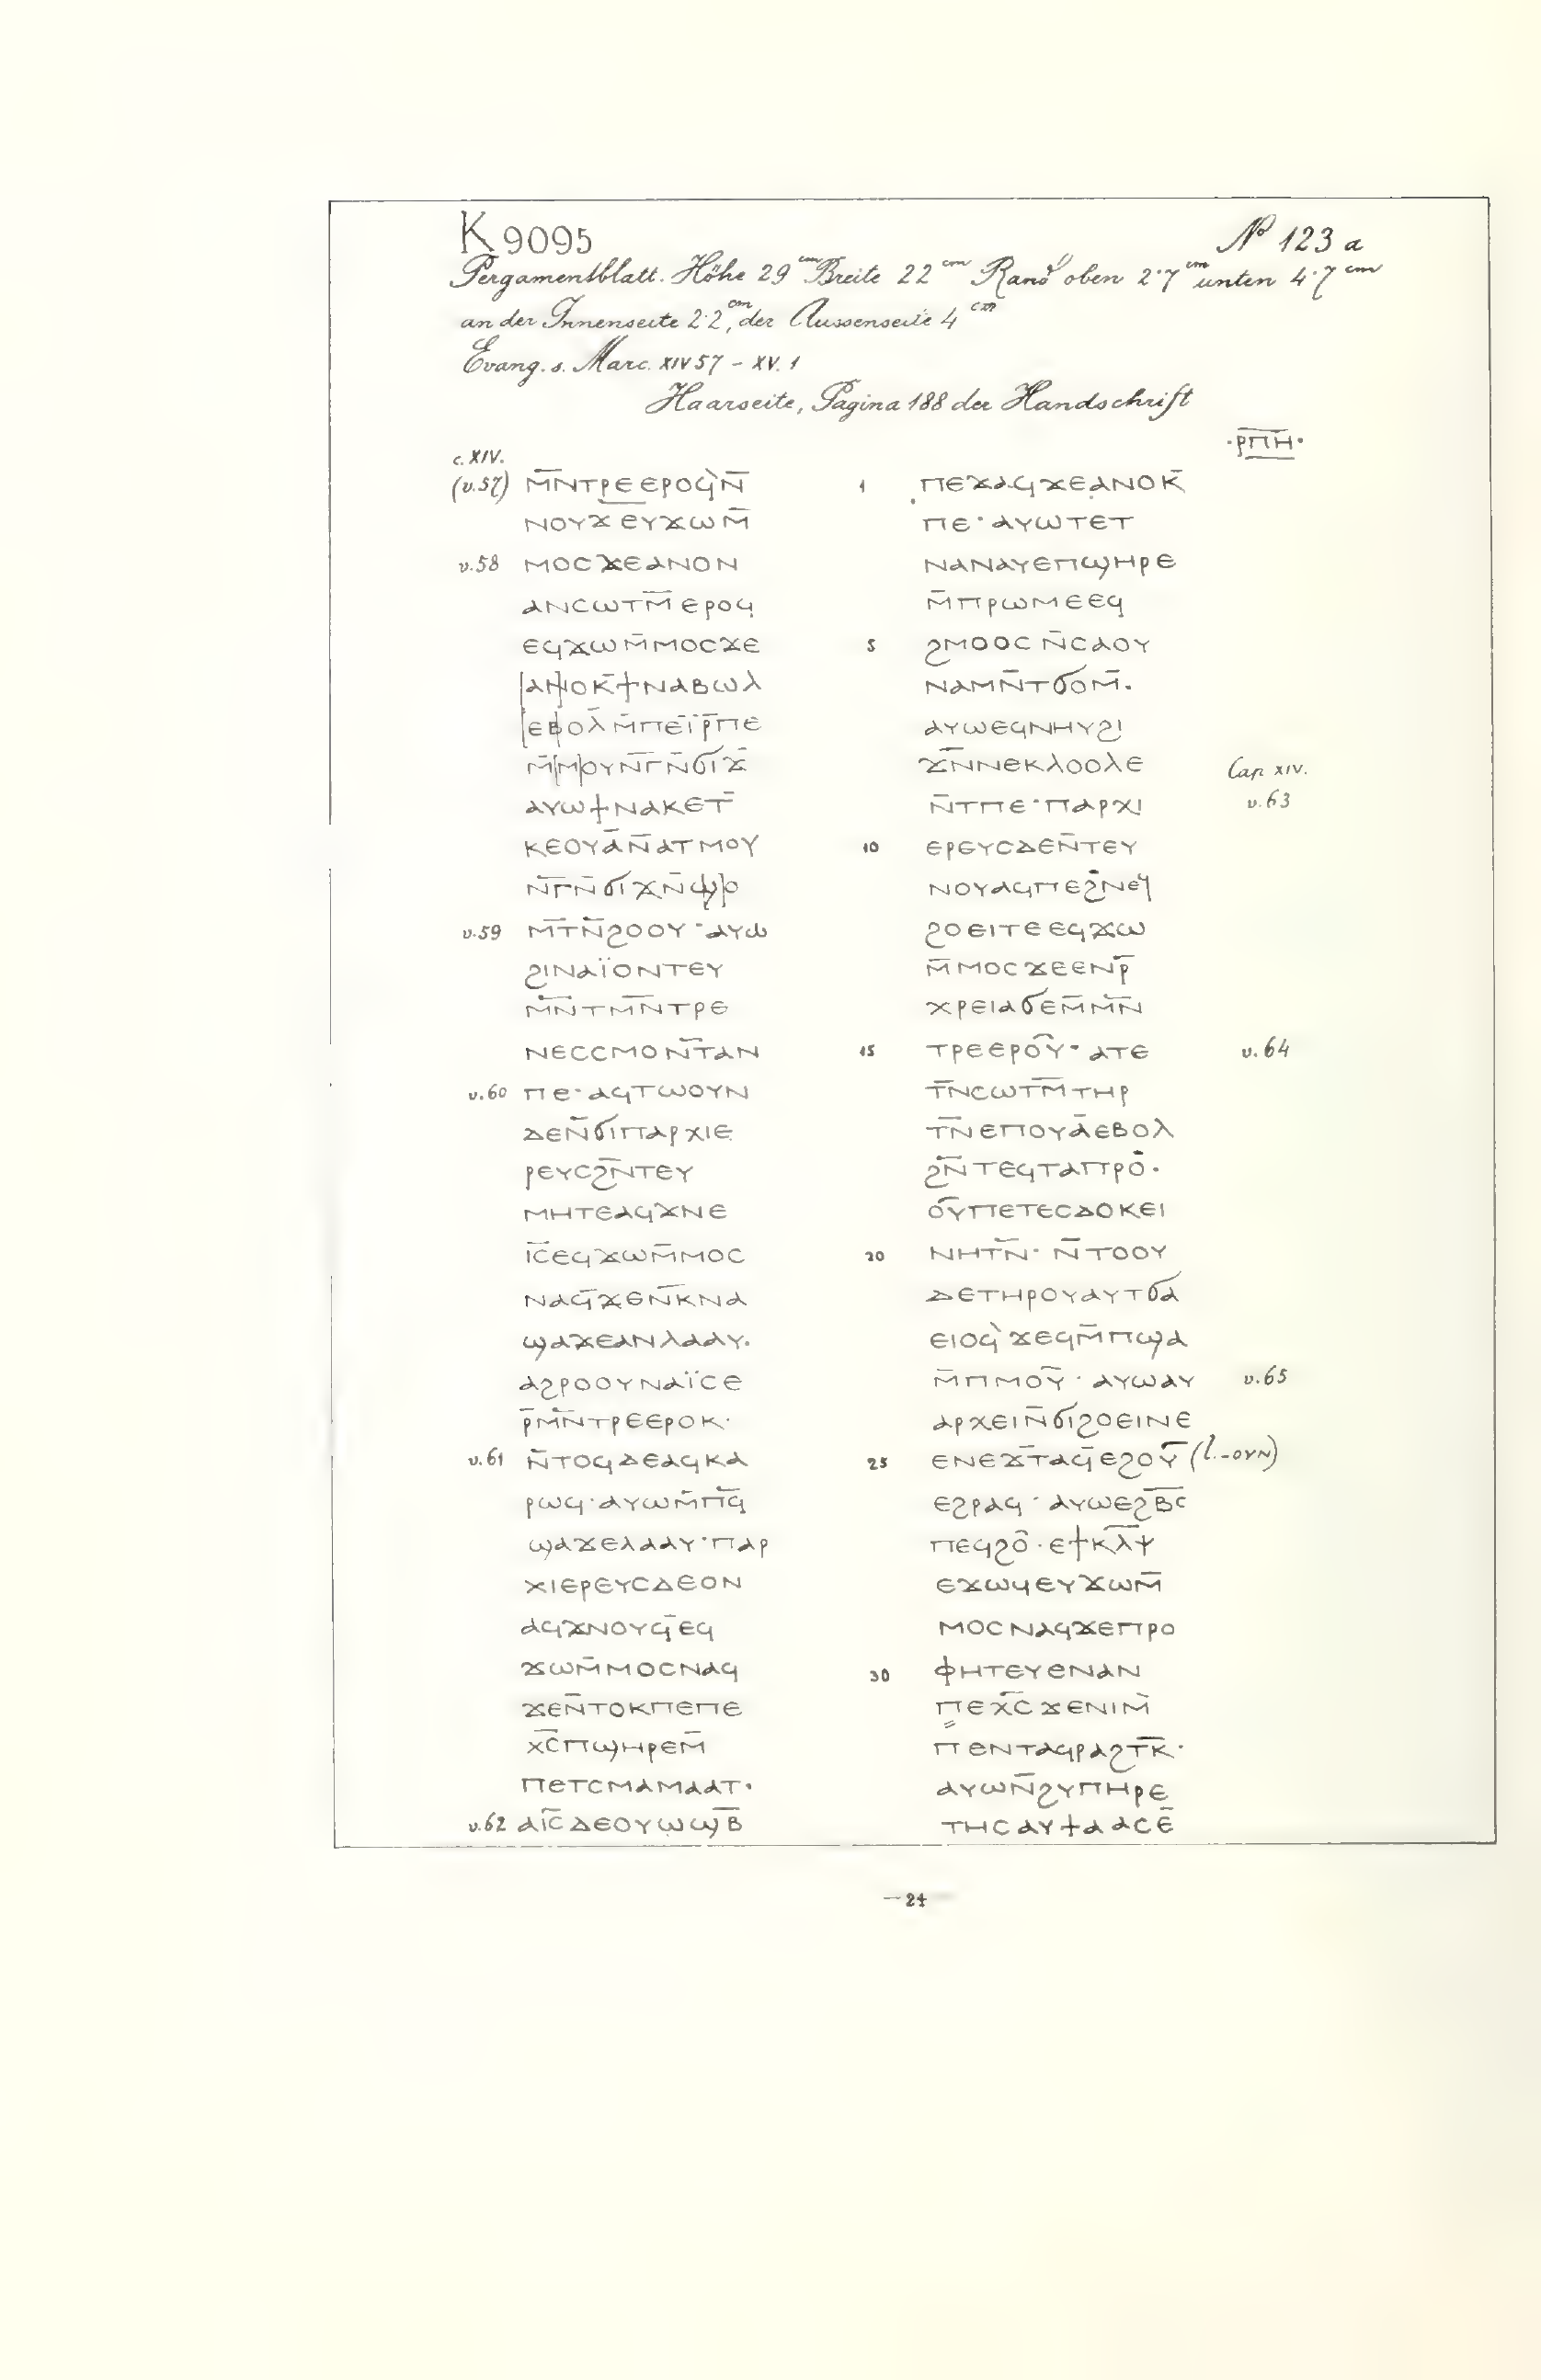 K 9095
№ 123 a
Pergamentblatt. Höhe 29 cm Breite 22 cm Rand oben 2·7 cm unten 4·7 cm
an der Innenseite 2·2 cm, der Aussenseite 4 cm
Evang. s. Marc. XIV 57 – XV. 1
Haarseite, Pagina 188 der Handschrift
·ⲣ̅ⲡ̅ⲏ̅·
c. XIV.
(v.57) ⲙ̅ⲛⲧⲣⲉⲉⲣⲟϥ̀ⲛ̅
ⲛⲟⲩϫⲉⲩϫⲱⲙ̅
v.58 ⲙⲟⲥϫⲉⲁⲛⲟⲛ
ⲁⲛⲥⲱⲧⲙ̅ⲉⲣⲟϥ
ⲉϥϫⲱⲙ̅ⲙⲟⲥϫⲉ
ⲁⲛⲟⲕ̅ϯⲛⲁⲃⲱⲗ
ⲉⲃⲟⲗ̅ⲙ̅ⲡⲉⲓ̈ⲣ̅ⲡⲉ
ⲙ̅ⲙⲟⲩⲛ̅ⲅⲛ̅ϭⲓϫ̅
ⲁⲩⲱϯⲛⲁⲕⲉⲧ̅
ⲕⲉⲟⲩⲁ̅ⲛ̅ⲁⲧⲙⲟⲩ
ⲛ̅ⲅⲛ̅ϭⲓϫⲛ̅ϣⲟ
v.59 ⲙ̅ⲧⲛ̅ϩⲟⲟⲩ·ⲁⲩⲱ
ϩⲓⲛⲁⲓ̈ⲟⲛⲧⲉⲩ
ⲙ̅ⲛⲧⲙ̅ⲛⲧⲣⲉ
ⲛⲉⲥⲥⲙⲟⲛ̅ⲧⲁⲛ
v.60 ⲡⲉ·ⲁϥⲧⲱⲟⲩⲛ
ⲇⲉⲛ̅ϭⲓⲡⲁⲣⲭⲓⲉ
ⲣⲉⲩⲥϩⲛ̅ⲧⲉⲩ
ⲙⲏⲧⲉⲁϥϫⲛⲉ
ⲓ̅ⲥ̅ⲉϥϫⲱⲙ̅ⲙⲟⲥ
ⲛⲁϥ̅ϫⲉⲛ̅ⲕⲛⲁ
ϣⲁϫⲉⲁⲛⲗⲁⲁⲩ.
ⲁϩⲣⲟⲟⲩⲛⲁⲓ̈ⲥⲉ
ⲣ̅ⲙⲛ̅ⲧⲣⲉⲉⲣⲟⲕ·
v.61 ⲛ̅ⲧⲟϥⲇⲉⲁϥⲕⲁ
ⲣⲱϥ·ⲁⲩⲱⲙ̅ⲡϥ̅
ϣⲁϫⲉⲗⲁⲁⲩ·ⲡⲁⲣ
ⲭⲓⲉⲣⲉⲩⲥⲇⲉⲟⲛ
ⲁϥϫⲛⲟⲩϥ̅ⲉϥ
ϫⲱⲙ̅ⲙⲟⲥⲛⲁϥ
ϫⲉⲛ̅ⲧⲟⲕⲡⲉⲡⲉ
ⲭ̅ⲥ̅ⲡϣⲏⲣⲉⲙ̅
ⲡⲉⲧⲥⲙⲁⲙⲁⲁⲧ·
v.62 ⲁⲓ̅ⲥ̅ⲇⲉⲟⲩⲱϣⲃ̅
1 ⲡⲉϫⲁϥϫⲉⲁⲛⲟⲕ̅
ⲡⲉ·ⲁⲩⲱⲧⲉⲧ
ⲛⲁⲛⲁⲩⲉⲡϣⲏⲣⲉ
ⲙ̅ⲡⲣⲱⲙⲉⲉϥ
5 ϩⲙⲟⲟⲥⲛ̅ⲥⲁⲟⲩ
ⲛⲁⲙⲛ̅ⲧϭⲟⲙ̅.
ⲁⲩⲱⲉϥⲛⲏⲩϩⲓ
ϫⲛ̅ⲛⲉⲕⲗⲟⲟⲗⲉ
Cap XIV.
ⲛ̅ⲧⲡⲉ·ⲡⲁⲣⲭⲓ v.63
10 ⲉⲣⲉⲩⲥⲇⲉⲛ̅ⲧⲉⲩ
ⲛⲟⲩⲁϥⲡⲉϩⲛⲉϥ
ϩⲟⲉⲓⲧⲉⲉϥϫⲱ
ⲙ̅ⲙⲟⲥϫⲉⲉⲛⲣ̅
ⲭⲣⲉⲓⲁϭⲉⲙ̅ⲙⲛ̅
15 ⲧⲣⲉⲉⲣⲟⲩ̂·ⲁⲧⲉ v.64
ⲧⲛ̅ⲥⲱⲧⲙ̅ⲧⲏⲣ
ⲧⲛ̅ⲉⲡⲟⲩⲁ̅ⲉⲃⲟⲗ
ϩⲛ̅ⲧⲉϥⲧⲁⲡⲣⲟ̂·
ⲟⲩ̅ⲡⲉⲧⲉⲥⲇⲟⲕⲉⲓ
20 ⲛⲏⲧⲛ̅·ⲛ̅ⲧⲟⲟⲩ
ⲇⲉⲧⲏⲣⲟⲩⲁⲩⲧϭⲁ
ⲉⲓⲟϥ̀ϫⲉϥⲙ̅ⲡϣⲁ
ⲙ̅ⲡⲙⲟⲩ̅·ⲁⲩⲱⲁⲩ v.65
ⲁⲣⲭⲉⲓⲛ̅ϭⲓϩⲟⲉⲓⲛⲉ
25 ⲉⲛⲉϫ̅ⲧⲁϥ̅ⲉϩⲟⲩ̅ (l.-ⲟⲩⲛ)
ⲉϩⲣⲁϥ·ⲁⲩⲱⲉϩⲃ̅ⲥ
ⲡⲉϥϩⲟ̂·ⲉϯⲕⲗ̅ⲯ
ⲉϫⲱϥⲉⲩϫⲱⲙ̅
ⲙⲟⲥⲛⲁϥϫⲉⲡⲣⲟ
30 ⲫⲏⲧⲉⲩⲉⲛⲁⲛ
ⲡⲉⲭ̅ⲥ̅ϫⲉⲛⲓⲙ̀
ⲡⲉⲛⲧⲁϥⲣⲁϩⲧⲕ̅·
ⲁⲩⲱⲛ̅ϩⲩⲡⲏⲣⲉ
ⲧⲏⲥⲁⲩϯⲁⲁⲥⲉ̅
—24